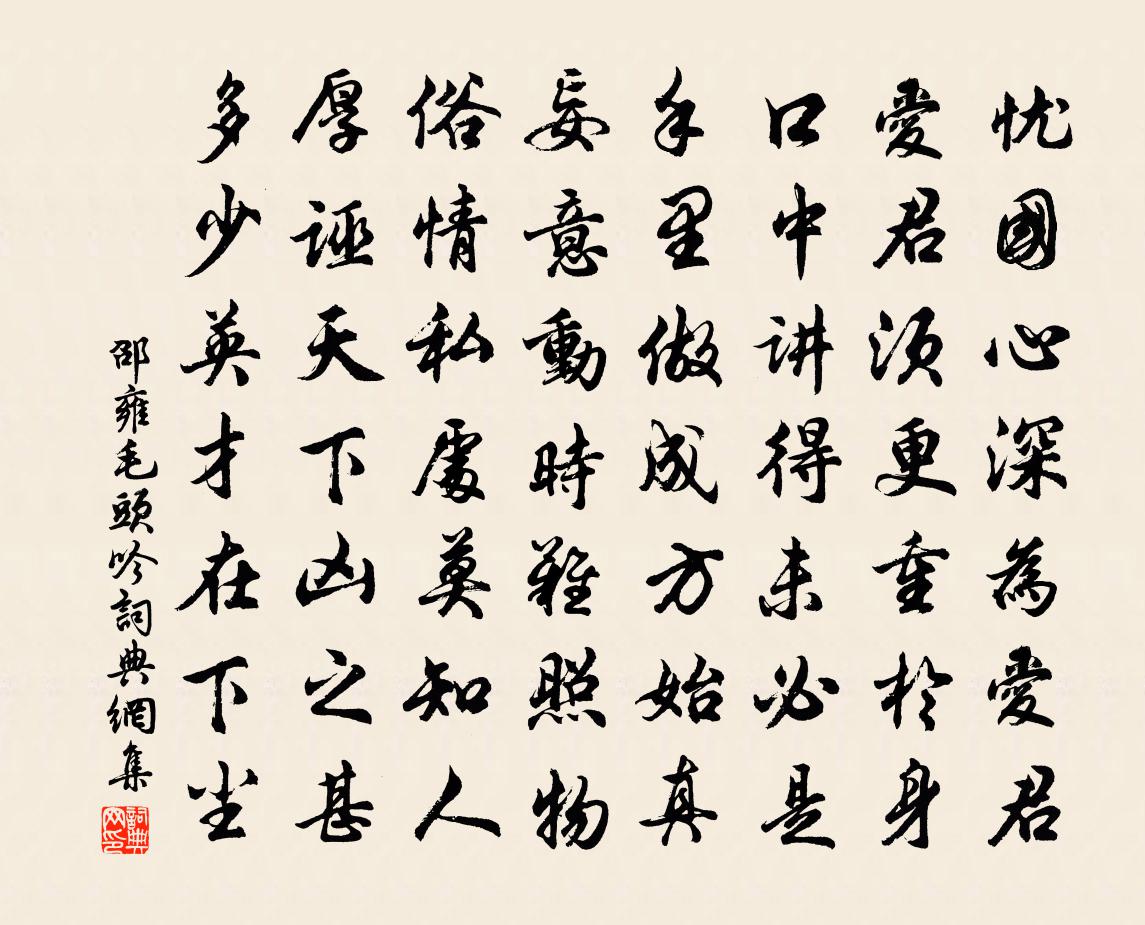 忧國心深為愛君
愛君须更重於身
口中讲得未必是
手里做成方始真
妄意動時難照物
俗情私處莫知人
厚诬天下凶之甚
多少英才在下尘
邵雍毛頭吟詞典網集
詞典网印